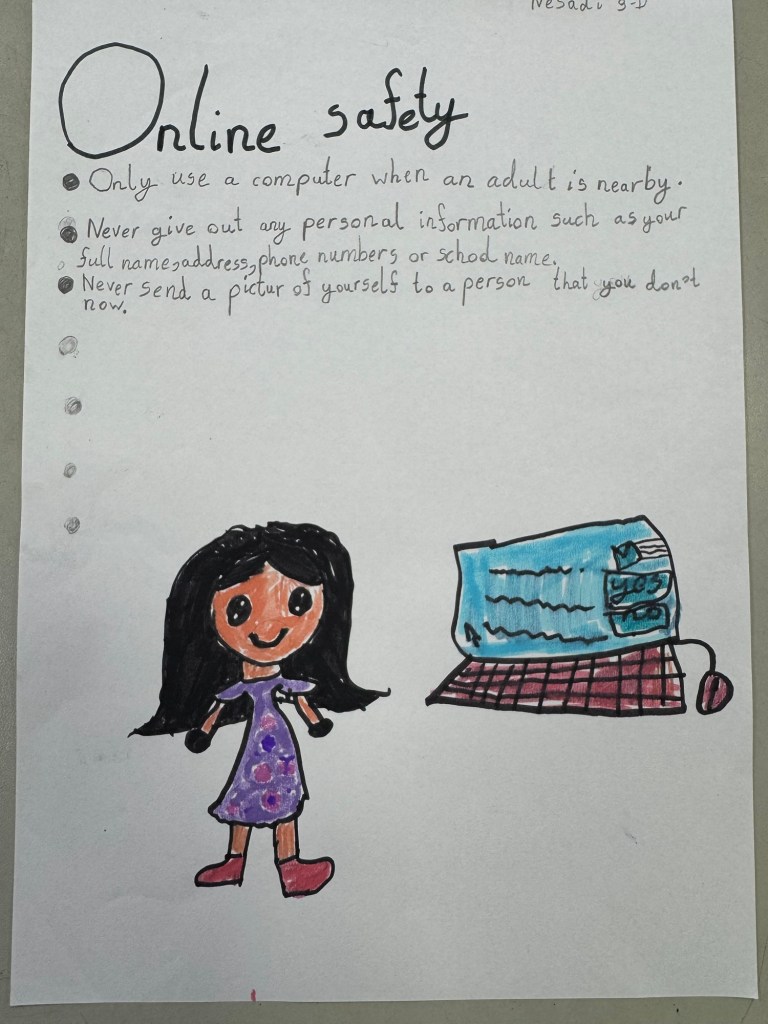 Nesadi 3-D
Online safety
● Only use a computer when an adult is nearby.
● Never give out any personal information such as your
full name, address, phone numbers or school name.
● Never send a pictur of yourself to a person that you don't
now.
yes
no